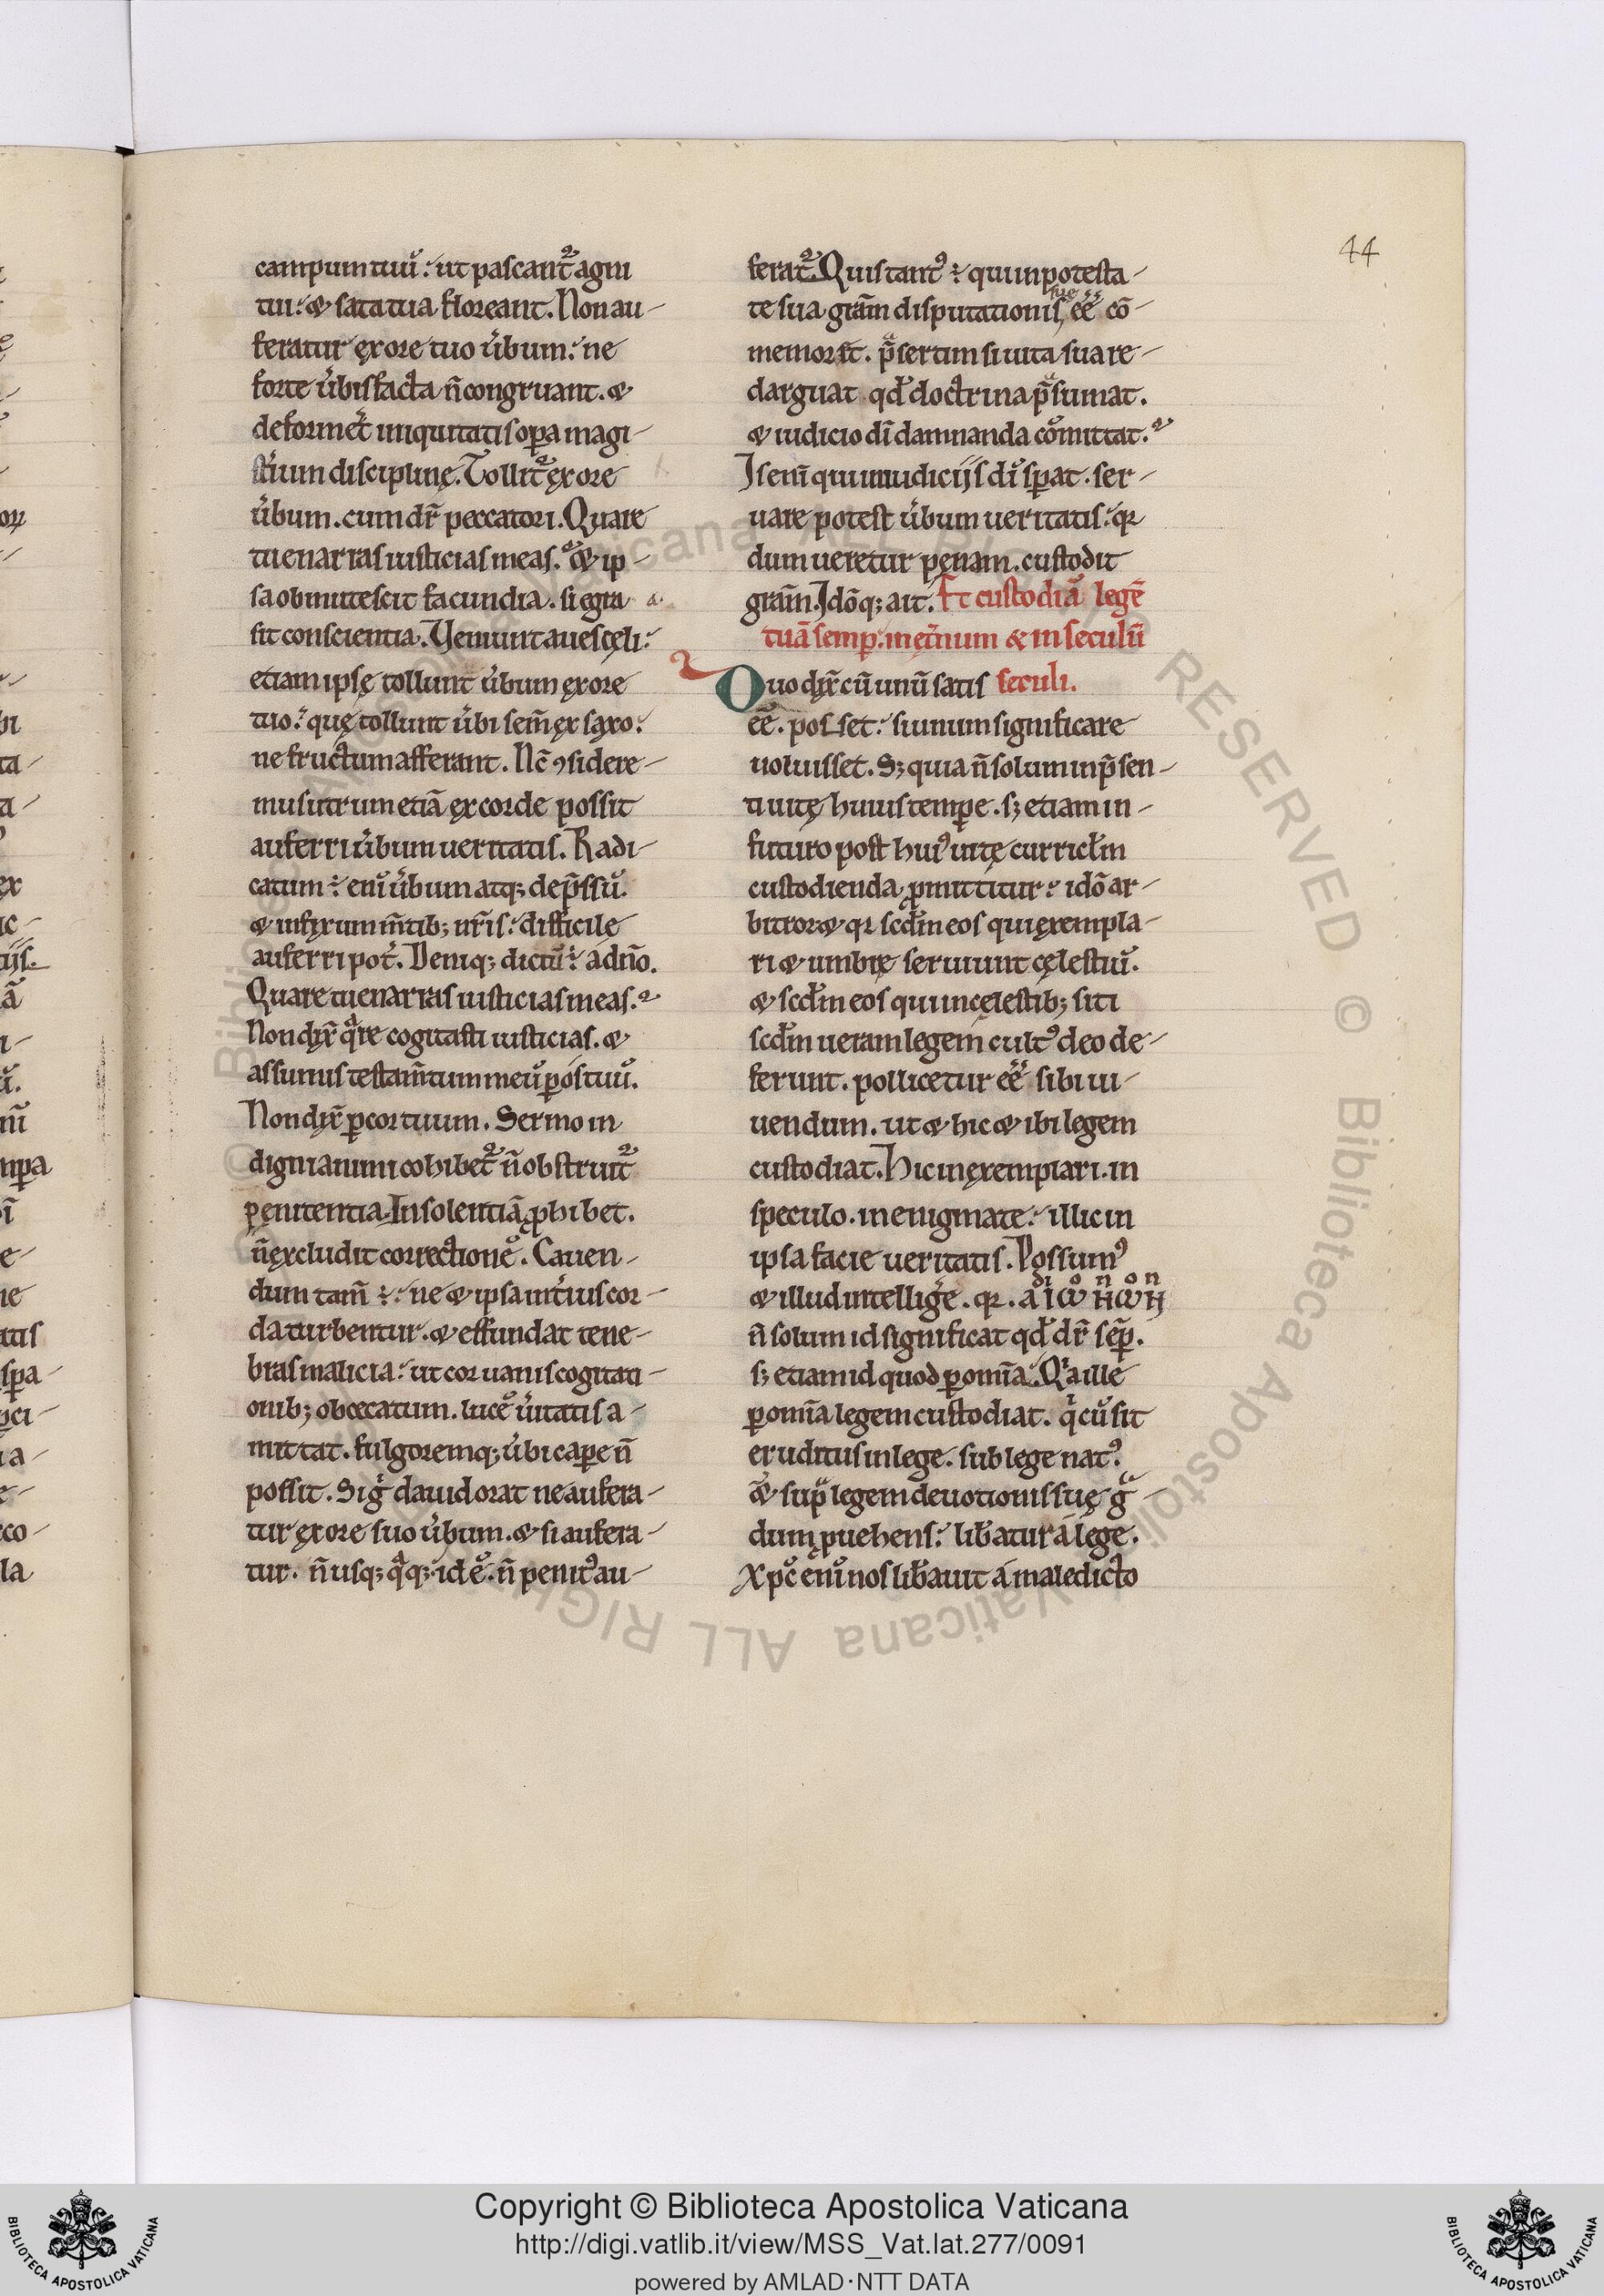 44
campum tuũ. ut pascant᷑ agni
tui. & sata tua floreant. Non au-
feratur ex ore tuo u̓bum. ne
forte u̓bis facta ñ congruant. &
deformet᷑ iniquitatis oꝑa magi-
st̓ium disciplinę. Tollit᷑ ex ore
u̓bum. cum dr̃ peccatori. Quare
tu enarras iusticias meas. & ip-
sa obmutescit facundia. si ęgra
sit conscientia. Veniunt aues cęli.
etiam ipsę tollunt u̓bum ex ore
tuo. quę tollunt u̓bi sem̃ ex saxo.
ne fructum afferant. Nc̃ ꝯsidere-
mus utrum etiã ex corde possit
auferri u̓bum ueritatis. Radi-
catum ÷ enĩ u̓bum atq; dep̃ssũ.
& infixum m̃tib; nr̃is. difficile
auferri pot̓. Deniq; dictũ ÷ a dño.
Quare tu enarras iusticias meas.
Non dix̃ q̃re cogitasti iusticias. &
assumis testam̃tum meũ ꝑ os tuũ.
Non dix̃ ꝑ cor tuum. Sermo in
dignantium cohibet᷑ ñ obstruit᷑
penitentia. Insolentiã ꝓhibet.
ñ excludit correctionẽ. Cauen-
dum tam̃ ÷. ne & ipsa int̓ius cor-
da turbentur. & effundat tene-
bras malicia. ut cor uanis cogitati-
onib; obcecatum. lucẽ u̓itatis a-
mittat. fulgoremq; u̓bi caꝑe ñ
possit. Sig̓ dauid orat ne aufera-
tur ex ore suo u̓bum. & si aufera-
tur. ñ usq; q̃q; id ẽ. ñ penit᷒ au-
ferat᷑. Quis tant᷒ ÷ qui in potesta-
te sua gram̃ disputationis suę eẽ cõ-
memoret. p̃sertim si uita sua re-
darguat qd̃ doctrina p̃sumat.
& iudicio di damnanda cõmittat.
Is enĩ qui in iudiciis di sꝑat. ser-
uare potest u̓bum ueritatis. qꝛ
dum ueretur pęnam. custodit
gram̃. Idõq; ait. Et custodiã legẽ
tuã semꝑ. in ęt̓num & in seculũ
seculi.
Quo dix̃ cũ unũ satis
eẽ. posset. si unum significare
uoluisset. S; quia ñ solum in p̃sen-
ti uitę huius tempe. s; etiam in
futuro post hui᷒ uitę curricl̃m
custodienda ꝓmittitur. idõ ar-
bitror & qꝛ scd̃m eos qui exempla-
ri & umbrę seruiunt cęlestiũ.
& scd̃m eos qui in cęlestib; siti
scd̃m ueram legem cult᷒ deo de-
ferunt. pollicetur eẽ sibi ui-
uendum. ut & hic & ibi legem
custodiat. Hic in exemplari. in
speculo. in enigmate. illic in
ipsa facie ueritatis. Possum᷒
& illud intellig̓e. qꝛ.
ñ solum id significat qd̃ dr̃ sẽꝑ.
s; etiam id quod ꝑ om̃ia. Qa ille
ꝑ om̃ia legem custodiat. q̓ cũ sit
eruditus in lege. sub lege nat᷒.
& sup̃ legem deuotionis suę g̃-
dum ꝓuehens. lib̓atur a lege.
Xpc̃ enĩ nos lib̓auit a maledicto
Copyright © Biblioteca Apostolica Vaticana
http://digi.vatlib.it/view/MSS_Vat.lat.277/0091
powered by AMLAD·NTT DATA